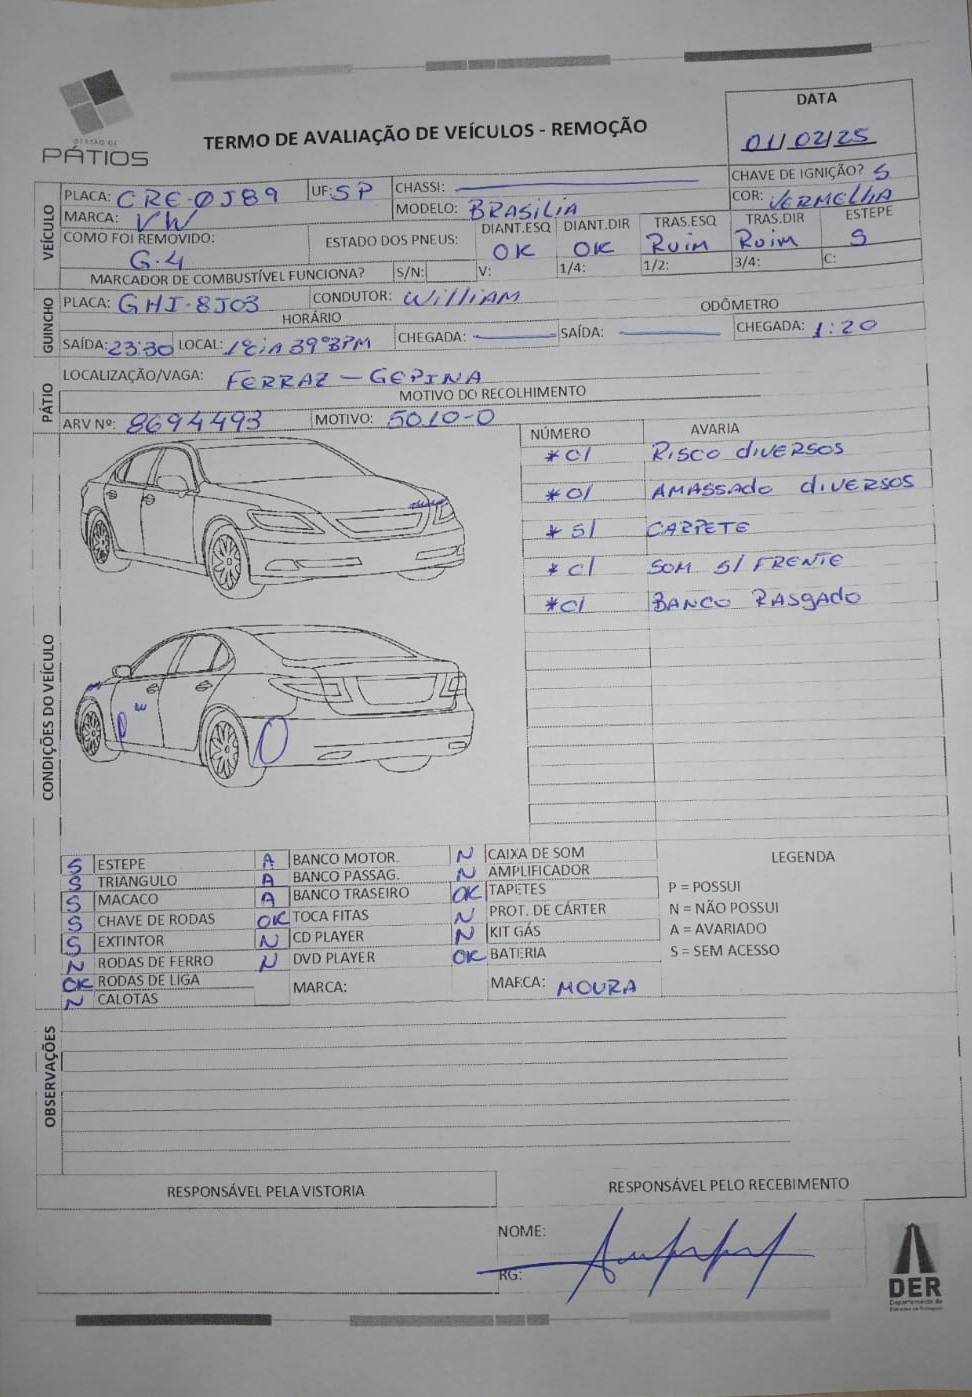 GESTÃO DE
PÁTIOS
TERMO DE AVALIAÇÃO DE VEÍCULOS - REMOÇÃO
DATA
01/02/25
VEÍCULO
PLACA: CRE-0J89 UF: SP CHASSI: CHAVE DE IGNIÇÃO? S
MARCA: VW MODELO: BRASILIA COR: VERMELHA
COMO FOI REMOVIDO: G.4 ESTADO DOS PNEUS: DIANT.ESQ OK DIANT.DIR OK TRAS.ESQ Ruim TRAS.DIR Ruim ESTEPE S
MARCADOR DE COMBUSTÍVEL FUNCIONA? S/N: V: 1/4: 1/2: 3/4: C:
GUINCHO
PLACA: GHI-8J03 CONDUTOR: William
HORÁRIO ODÔMETRO
SAÍDA: 23:30 LOCAL: 1ªCIA 39ºBPM CHEGADA: SAÍDA: CHEGADA: 1:20
PÁTIO
LOCALIZAÇÃO/VAGA: FERRAZ - GEPINA
MOTIVO DO RECOLHIMENTO
ARV Nº: 8694493 MOTIVO: 5010-0
CONDIÇÕES DO VEÍCULO
NÚMERO AVARIA
* C/ RISCO diVERSOS
* C/ AMASSADO diVERSOS
* S/ CARPETE
* C/ SOM S/ FRENTE
* C/ BANCO RASGADO
S ESTEPE A BANCO MOTOR. N CAIXA DE SOM
S TRIANGULO A BANCO PASSAG. N AMPLIFICADOR
S MACACO A BANCO TRASEIRO OK TAPETES
S CHAVE DE RODAS OK TOCA FITAS N PROT. DE CÁRTER
S EXTINTOR N CD PLAYER N KIT GÁS
N RODAS DE FERRO N DVD PLAYER OK BATERIA
OK RODAS DE LIGA MARCA: MARCA: MOURA
N CALOTAS
LEGENDA
P = POSSUI
N = NÃO POSSUI
A = AVARIADO
S = SEM ACESSO
OBSERVAÇÕES
RESPONSÁVEL PELA VISTORIA RESPONSÁVEL PELO RECEBIMENTO
NOME:
RG:
DER
Departamento de